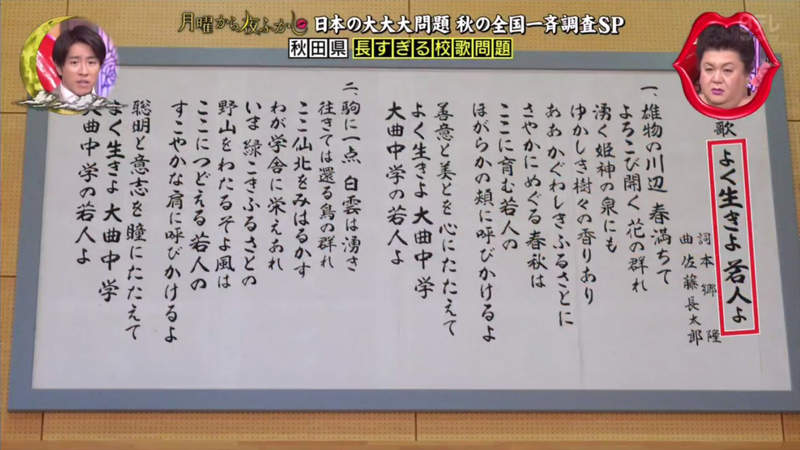 月曜から夜ふかし
日本の大大大問題 秋の全国一斉調査SP
秋田県 長すぎる校歌問題
歌 よく生きよ 若人よ
詞 本郷 隆
曲 佐藤長太郎
一、雄物の川辺 春満ちて
よろこび開く 花の群れ
湧く姫神の泉にも
ゆかしさ樹々の香りあり
ああ かぐわしきふるさとに
さやかにめぐる春秋は
ここに育む若人の
ほがらかの頬に呼びかけるよ
善意と美とを心にたたえて
よく生きよ 大曲中学
大曲中学の若人よ
二、駒に一点 白雲は湧き
往きては還る鳥の群れ
ここ仙北をみはるかす
わが学舎に栄えあれ
いま緑こきふるさとの
野山をわたるそよ風は
ここにつどえる若人の
すこやかな肩に呼びかけるよ
聡明と意志を瞳にたたえて
よく生きよ 大曲中学
大曲中学の若人よ